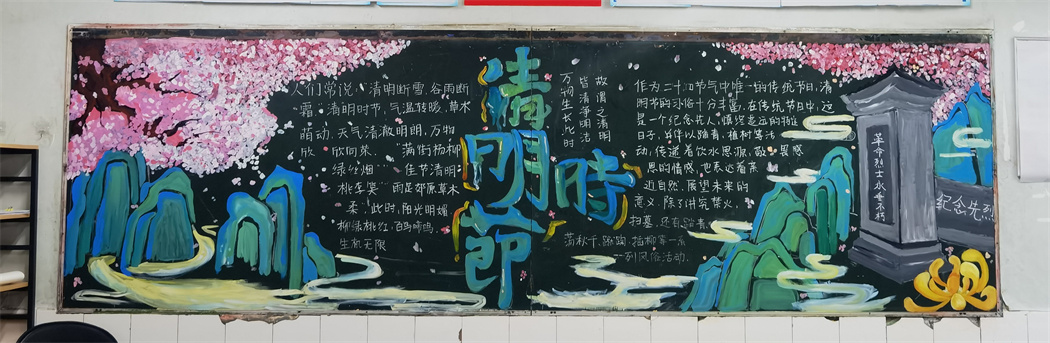 人们常说：“清明断雪，谷雨断
霜”清明时节，气温转暖，草木
萌动，天气清澈明朗，万物
欣欣向荣。“满街杨柳
绿丝烟
佳节清明
桃李笑”雨足郊原草木
柔，此时，阳光明媚
柳绿桃红，百鸟啼鸣，
生机无限
清明時節
万物生长此时
皆清净明洁
故谓之清明
作为二十四节气中唯一的传统节日，清
明节的习俗十分丰富，在传统节日中，这
是一个纪念先人、慎终追远的特定
日子，并伴以踏青、植树等活
动，传递着饮水思源，敬畏感
恩的情感，也表达着亲
近自然、展望未来的
意义，除了讲究禁火、
扫墓，还有踏青、
荡秋千、蹴鞠、插柳等一系
列风俗活动。
革命烈士永垂不朽
纪念先烈